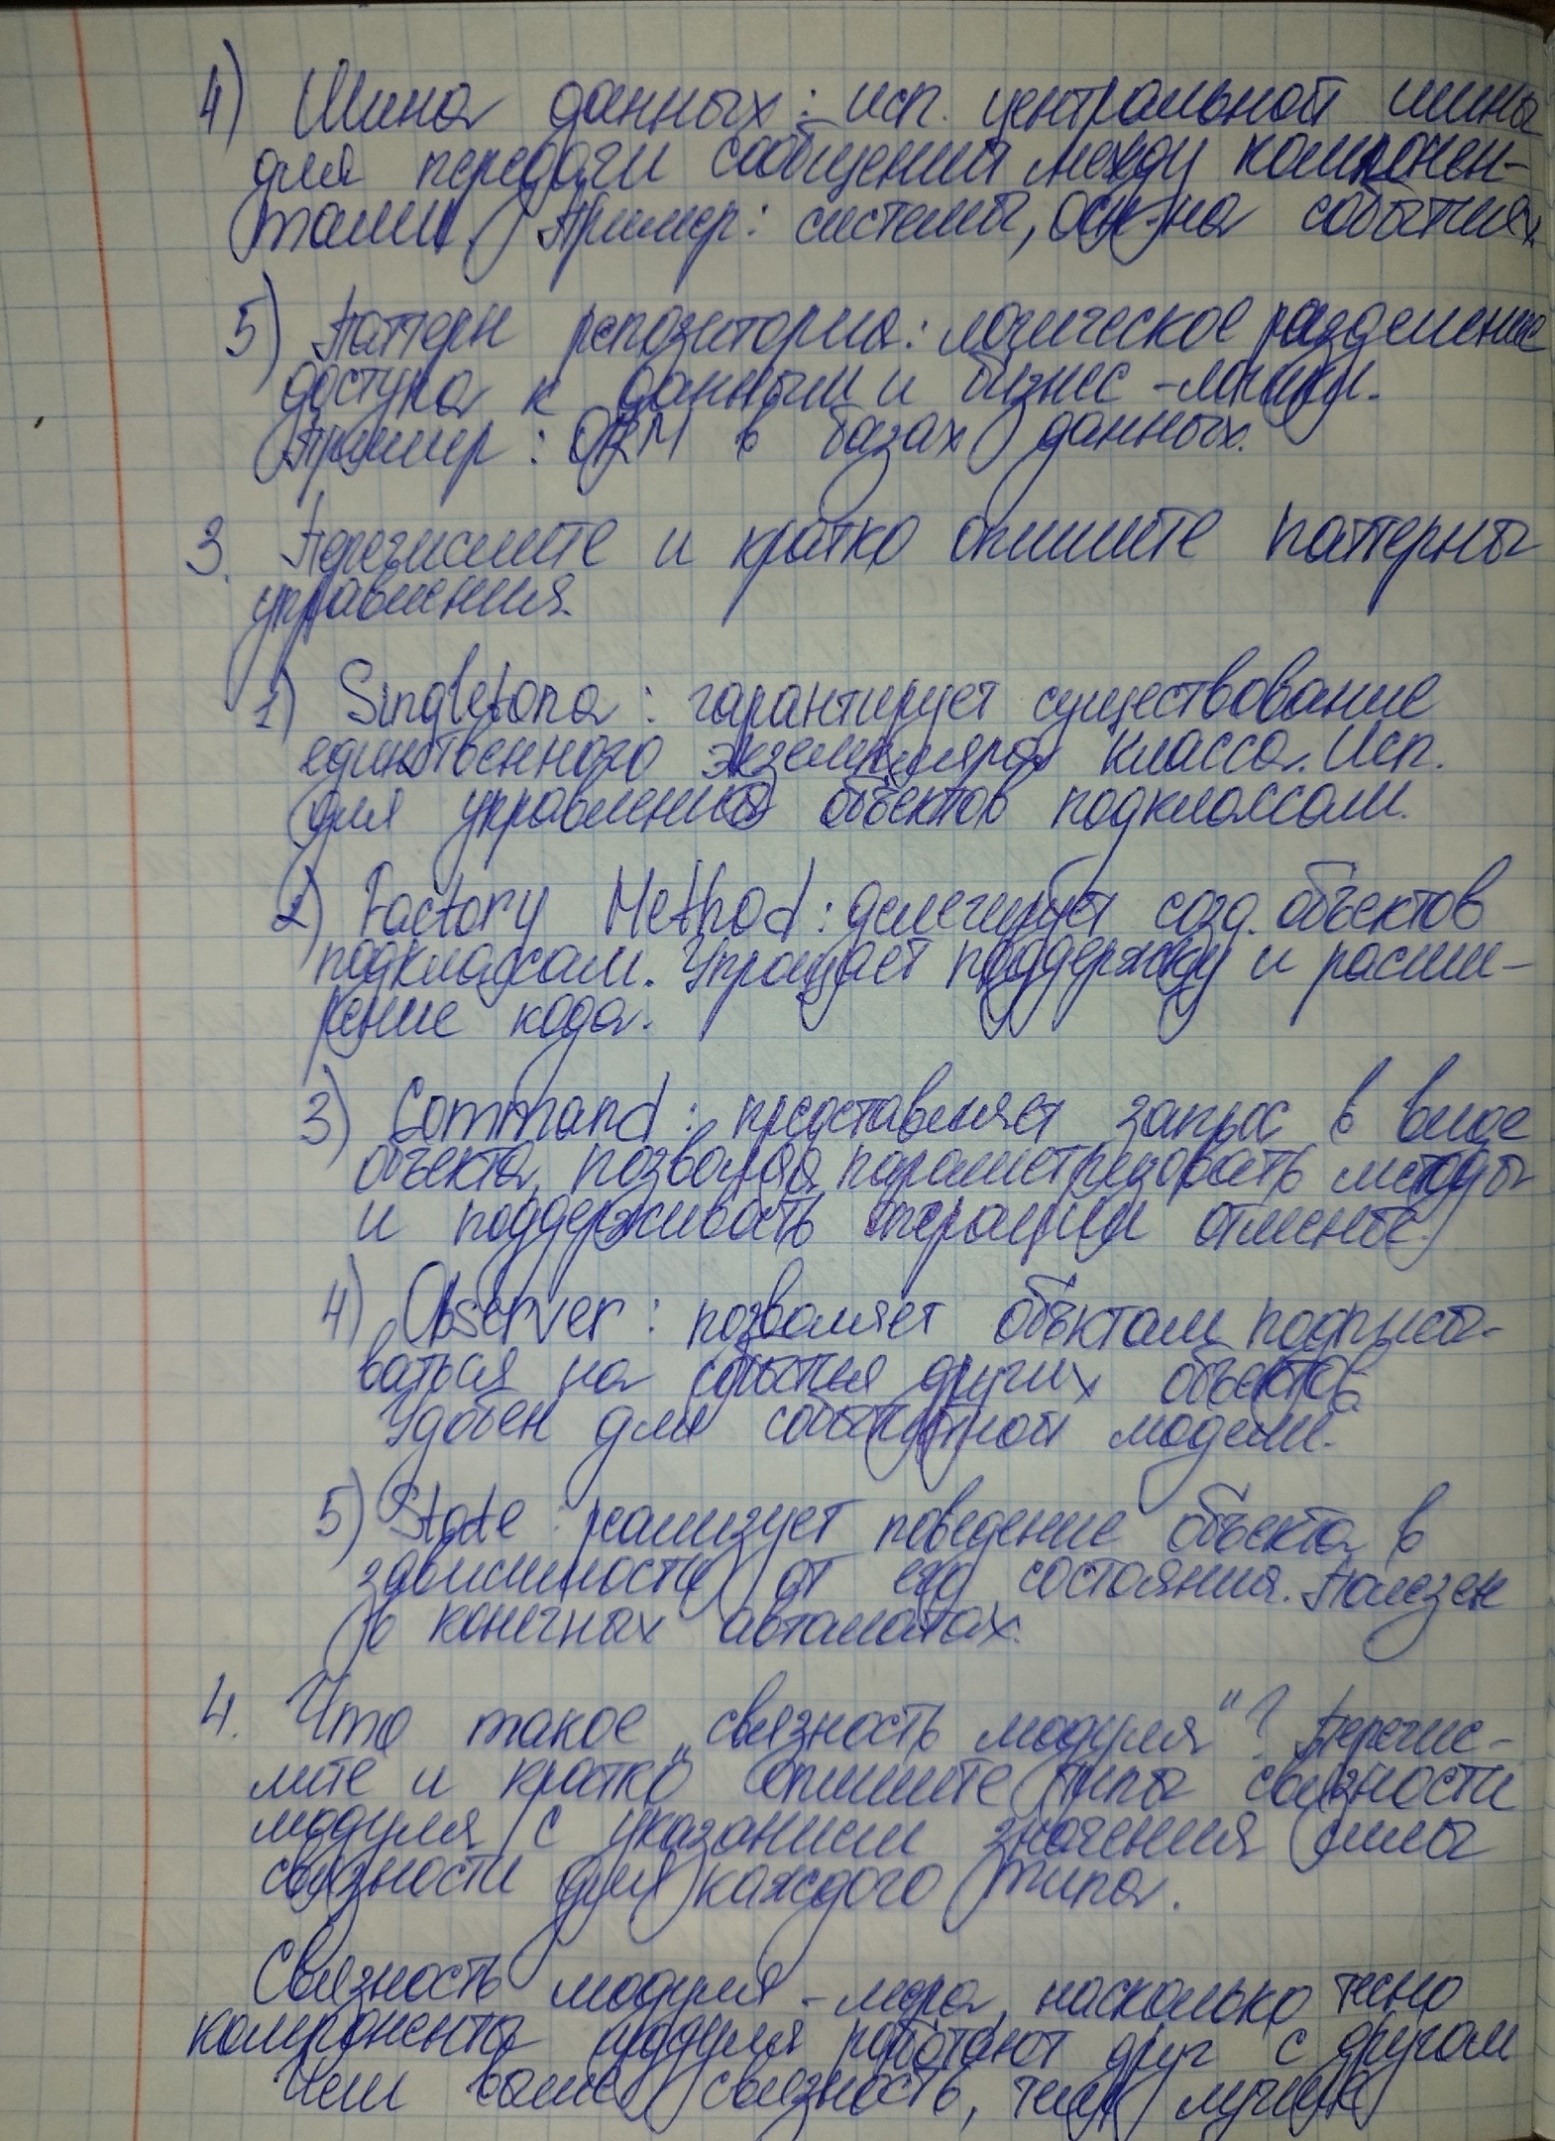 4) Шина данных: исп. центральной шины
для передачи сообщений между компонен-
тами. Пример: системы, осн. на событиях
5) Паттерн репозитория: логическое разделение
доступа к данным и бизнес-логики.
Пример: ORM в базах данных.
3. Перечислите и кратко опишите паттерны
управления.
1) Singletona: гарантирует существование
единственного экземпляра класса. Исп.
для управления объектов подклассам.
2) Factory Method: делегирует созд. объектов
подклассам. Упрощает поддержку и расши-
рение кода.
3) Command: представляет запрос в виде
объекта, позволяя параметризовать методы
и поддерживать операции отмены.
4) Observer: позволяет объектам подписы-
ваться на события других объектов.
Удобен для событийной модели.
5) State: реализует поведение объекта в
зависимости от его состояния. Полезен
в конечных автоматах.
4. Что такое „связность модуля“? Перечис-
лите и кратко опишите типы связности
модуля с указанием значения силы
связности для каждого типа.
Связность модуля - мера, насколько тесно
компоненты модуля работают друг с другом
Чем выше связность, тем лучше